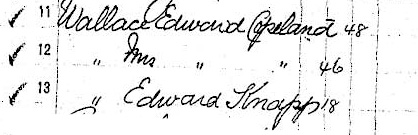 ✓ 11 Wallace Edward Copeland 48
✓ 12 " Mrs " " 46
✓ 13 " Edward Knapp 18